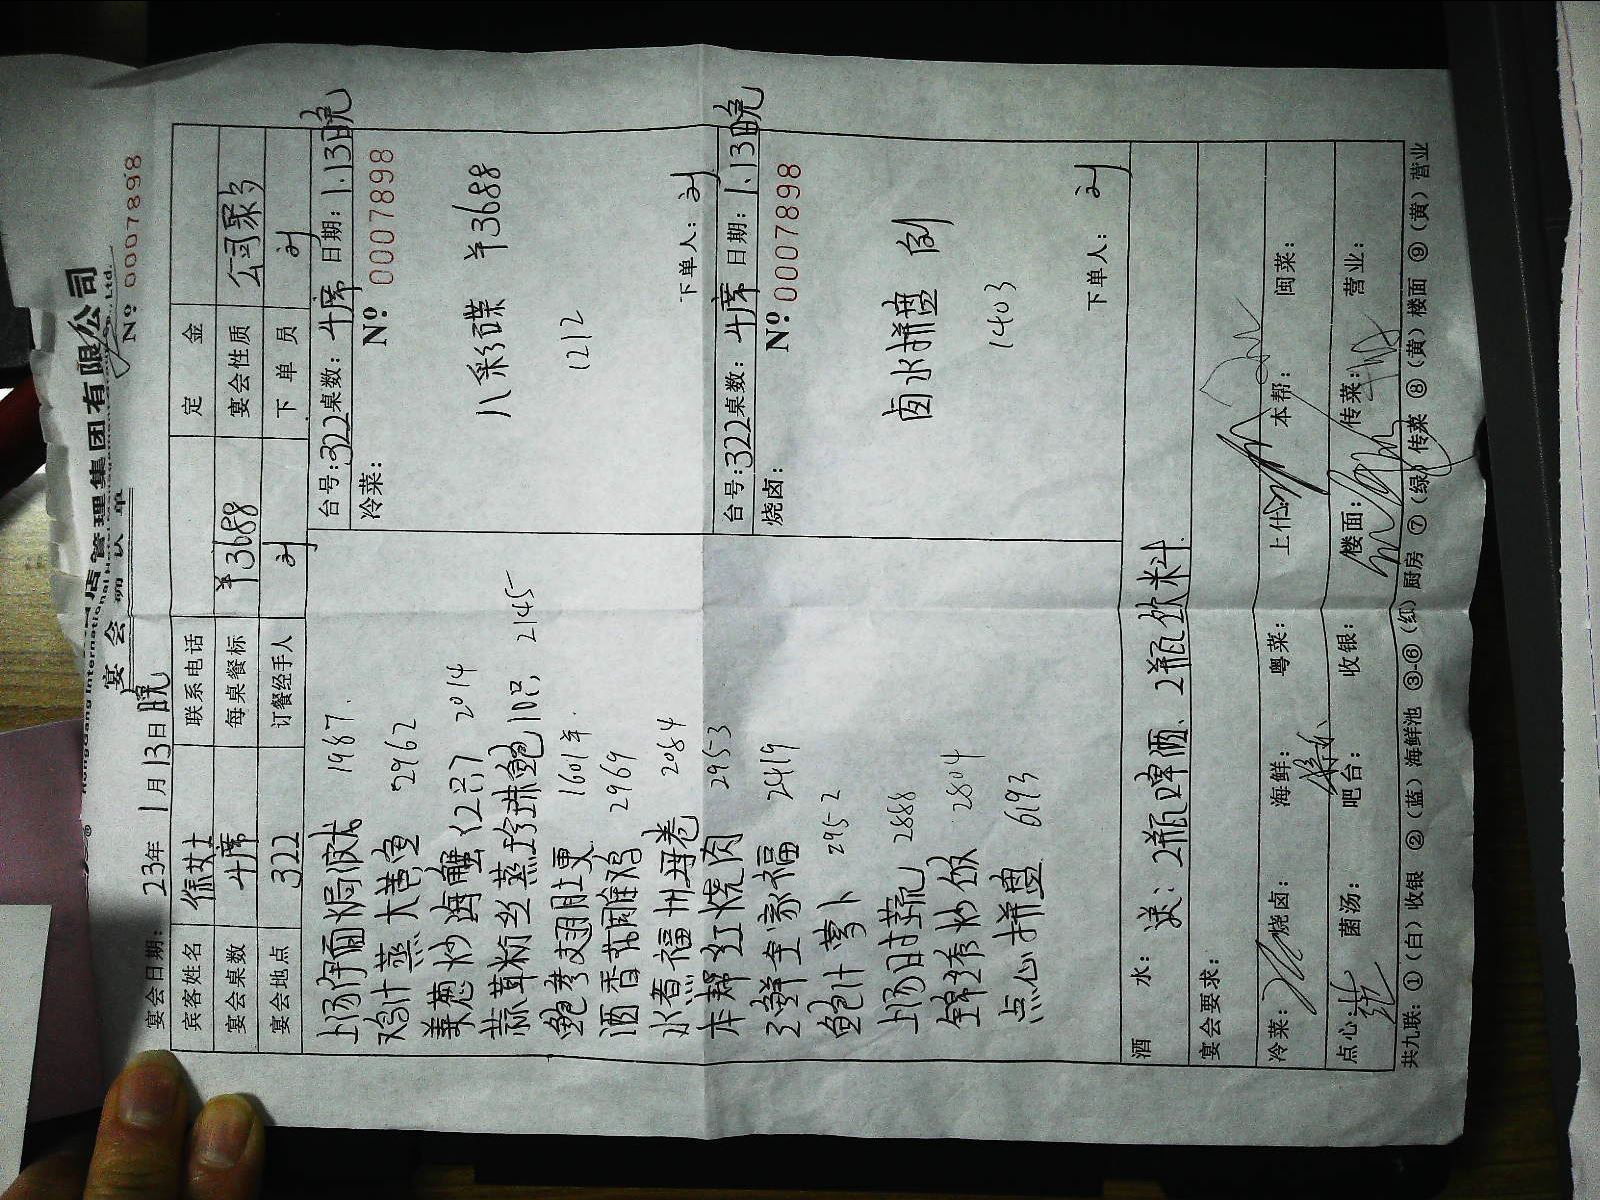 店管理集团有限公司
International
Ltd.
宴会确认单
№ 0007898
宴会日期：23年1月13日晚
宾客姓名 徐女士 联系电话 定金
宴会桌数 1席 每桌餐标 ¥3688 宴会性质 公司聚
宴会地点 322 订餐经手人 刘 下单员 刘
上汤伊面焗波龙 1987
鸡汁蒸大黄鱼 2962
姜葱炒海蟹(2只) 2014
蒜蓉粉丝蒸珍珠鲍10只 2145
鲍参翅肚羹 1601
酒香 鸡 2969
水煮福州海卷 2084
本帮红烧肉 2953
三鲜全家福 2419
鲍汁萝卜 2952
上汤时蔬 2888
锦绣炒饭 2804
点心拼盘 6193
台号：322 桌数：1席 日期：1.13晚
冷菜： № 0007898
八彩碟 ¥3688
1212
下单人：刘
台号：322 桌数：1席 日期：1.13晚
烧卤： № 0007898
卤水拼盘 例
1403
下单人：刘
酒水：送：2瓶啤酒、2瓶饮料
宴会要求：
冷菜： 烧卤： 海鲜： 粤菜： 上什： 本帮： 闽菜：
点心： 菌汤： 吧台： 收银： 楼面： 传菜： 营业：
共九联：①（白）收银 ②（蓝）海鲜池 ③-⑥（红）厨房 ⑦（绿）传菜 ⑧（黄）楼面 ⑨（黄）营业